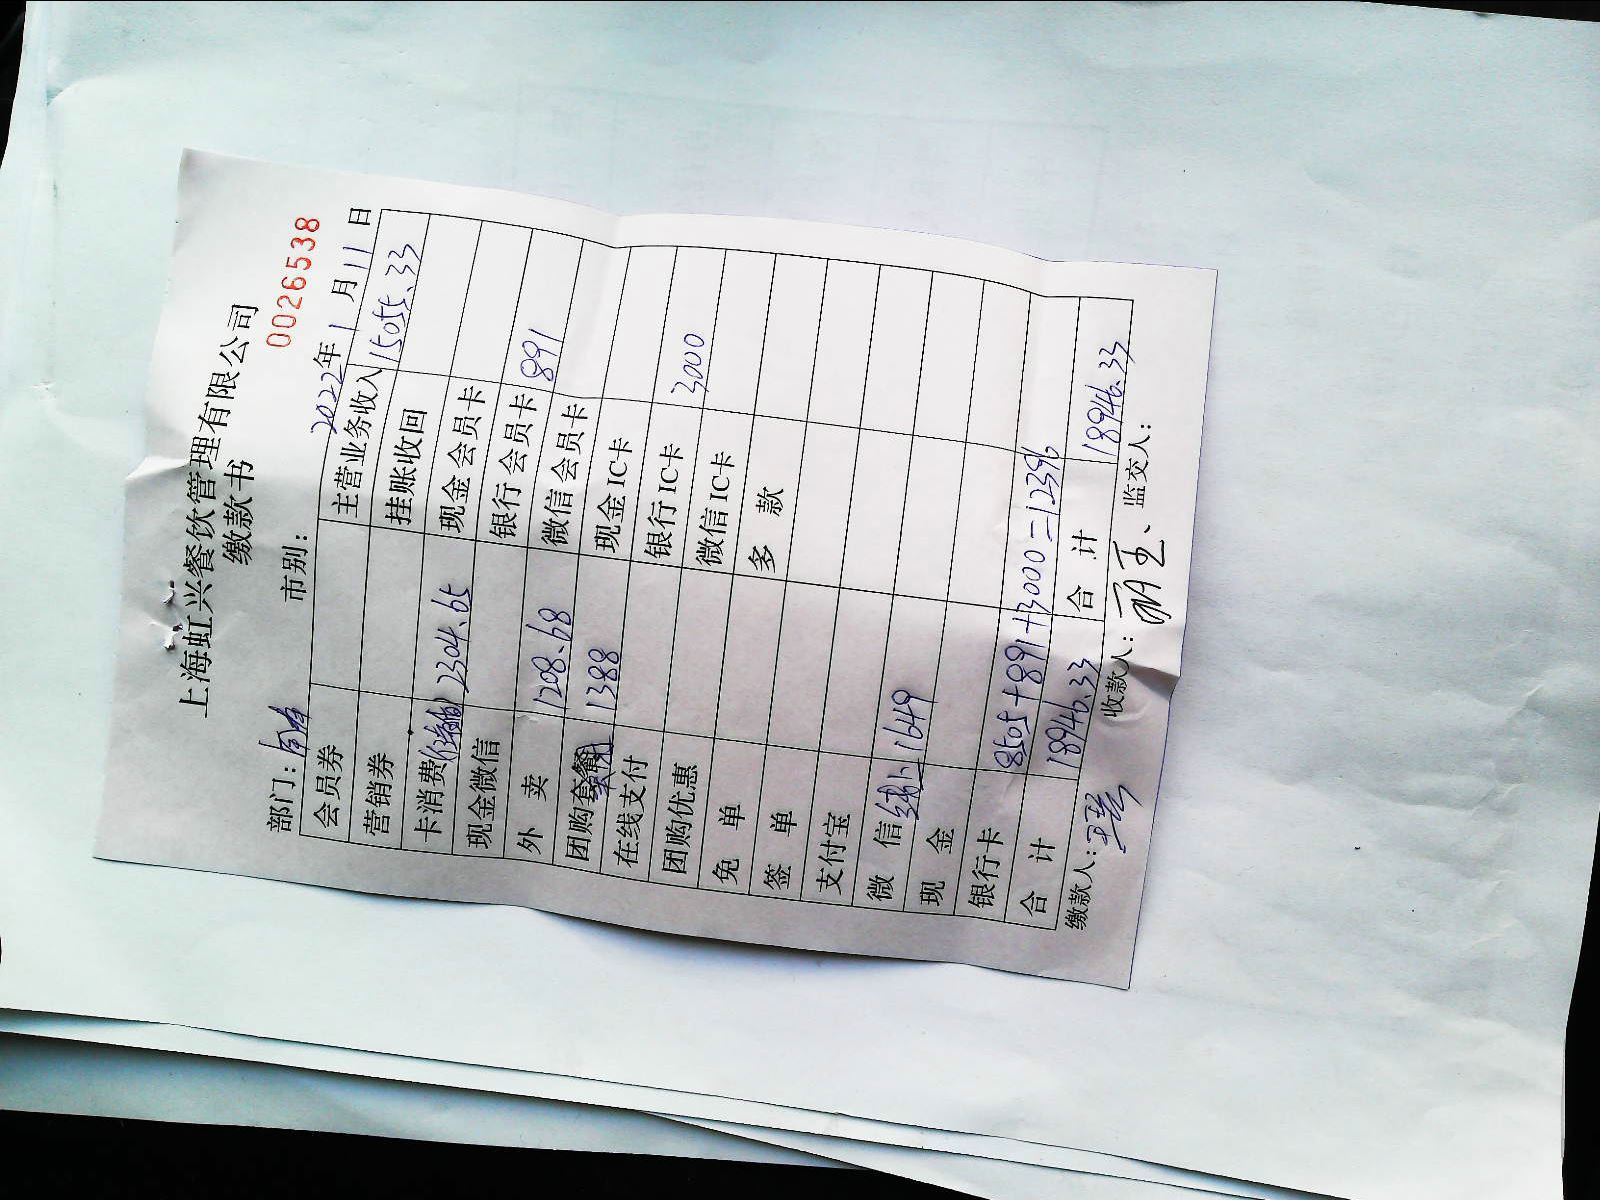 上海虹兴餐饮管理有限公司
缴款书
0026538
部门: 市别: 2022年1月11日
会员券 主营业务收入 15055.33
营销券 挂账收回
卡消费 2304.65 现金会员卡
现金微信 银行会员卡 891
外 卖 1208.68 微信会员卡
团购套餐 1388 现金IC卡
在线支付 银行IC卡 3000
团购优惠 微信IC卡
免 单 多 款
签 单
支付宝
微 信 1649
现 金
银行卡 8505+891+3000=12396
合 计 18946.33 合 计 18946.33
缴款人: 收款人: 监交人: